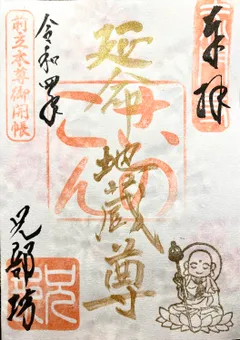 奉拝
延命地蔵尊
令和四年
兄部坊
前立本尊御開帳
祝